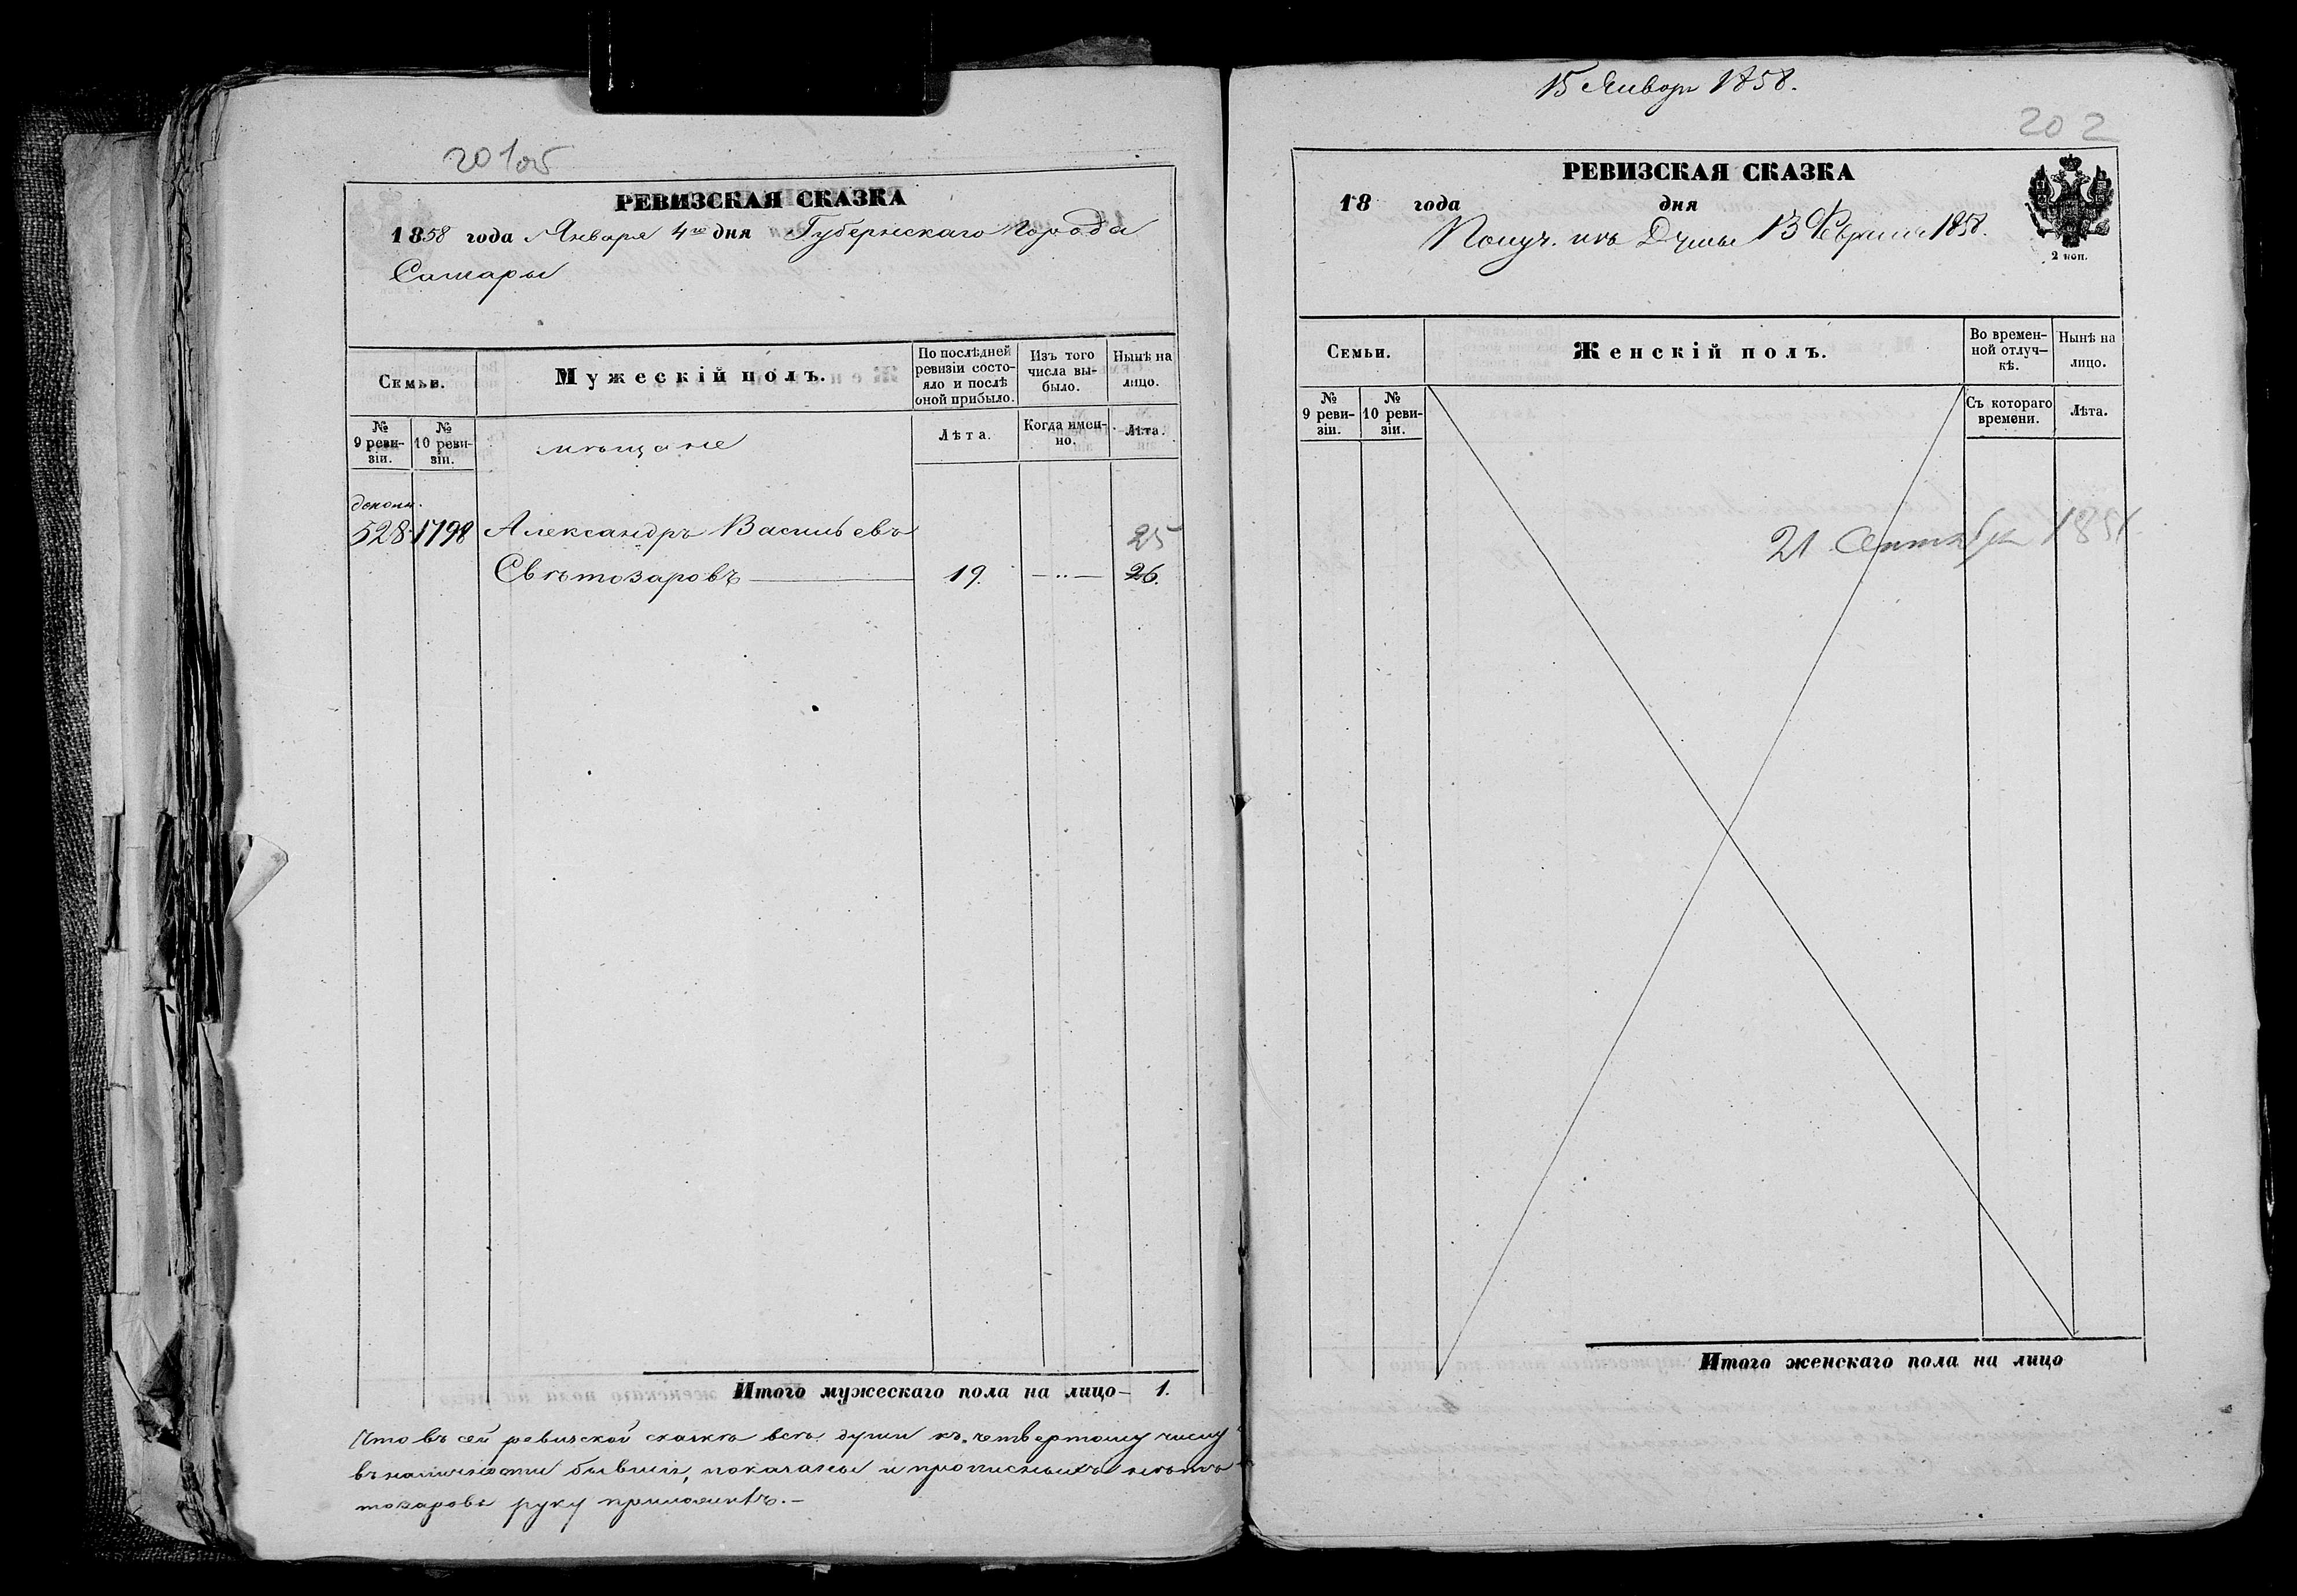 201об
РЕВИЗСКАЯ СКАЗКА
1858 года Января 4го дня Губернскаго Города
Самары
Семьи.
Мужескій полъ.
По послѣдней ревизіи состо-яло и послѣ оной прибыло.
Изъ того числа вы-было.
Нынѣ на лицо.
№ 9 реви-зіи.
№ 10 реви-зіи.
мѣщане
Лѣта.
Когда имен-но.
Лѣта.
дополн.
528. 1798 Александръ Васильевъ 25
Свѣтозаровъ 19. —"— 26.
Итого мужескаго пола на лицо — 1.
Что въ сей ревизской сказкѣ всѣ души къ четвертому числу
въ наличности бывшія, показаны и прописныхъ нѣтъ
товаровъ руку приложилъ. —
15 Января 1858.
202
РЕВИЗСКАЯ СКАЗКА
18 года дня
Получ. изъ Думы 13 Февраля 1858.
2 коп.
Семьи.
Женскій полъ.
Во времен-ной отлуч-кѣ.
Нынѣ на лицо.
№ 9 реви-зіи.
№ 10 реви-зіи.
Съ котораго времени.
Лѣта.
21 Сентября 1851
Итого женскаго пола на лицо